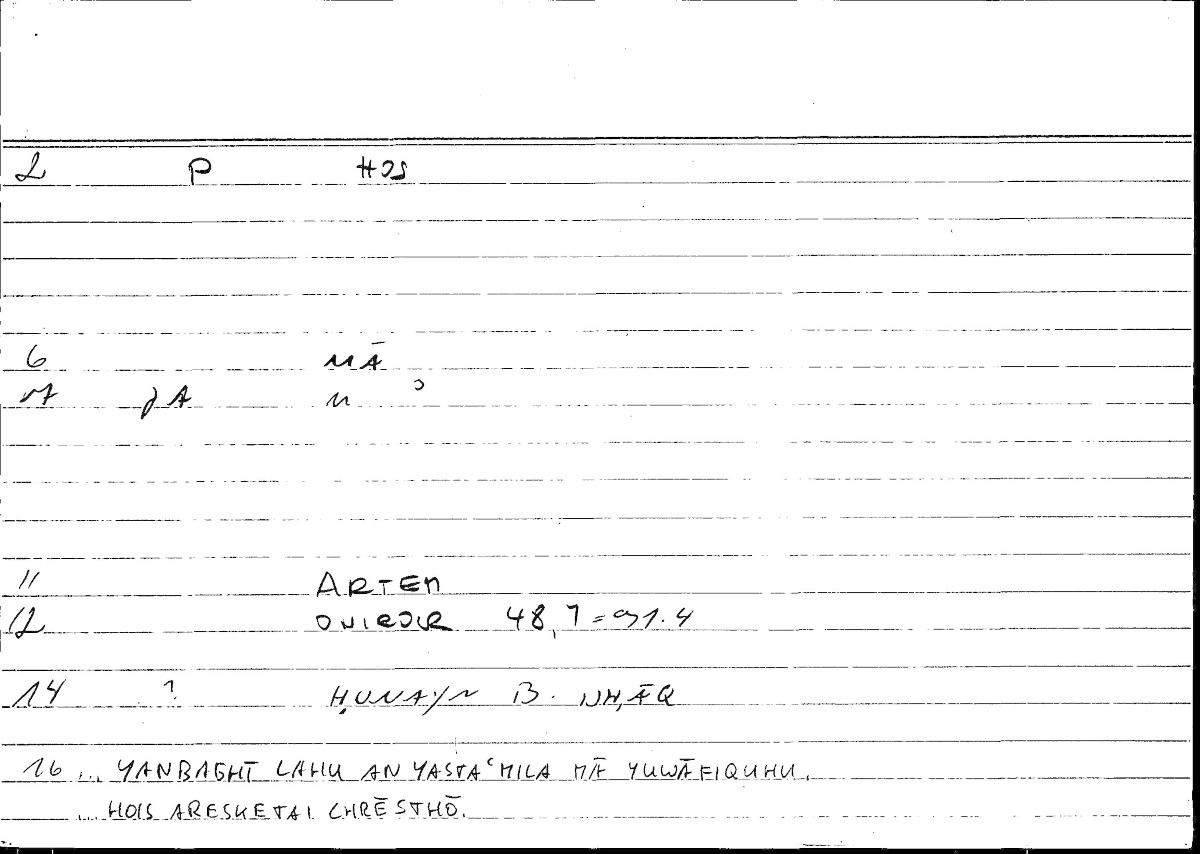 2 P HOS
6 MĀ
7 A M ʾ
11 ARTEM
12 ONIROCR 48,7 = 91.4
14 ? ḤUNAYN B. ISḤĀQ
16 ... YANBAGHĪ LAHU AN YASTAʿMILA MĀ YUWĀFIQUHU.
... HOIS ARESKETAI CHRĒSTHŌ.